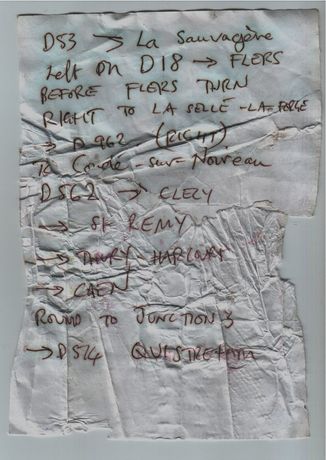 D53 → La Sauvagère
Left on D18 → FLERS
BEFORE FLERS TURN
RIGHT TO LA SELLE-LA-FORGE
→ D962 (RIGHT)
To Conde-sur-Noireau
D562 → CLECY
→ St REMY
→ THURY HARCOURT
→ CAEN
ROUND TO JUNCTION 3
→ D514 OUISTREHAM